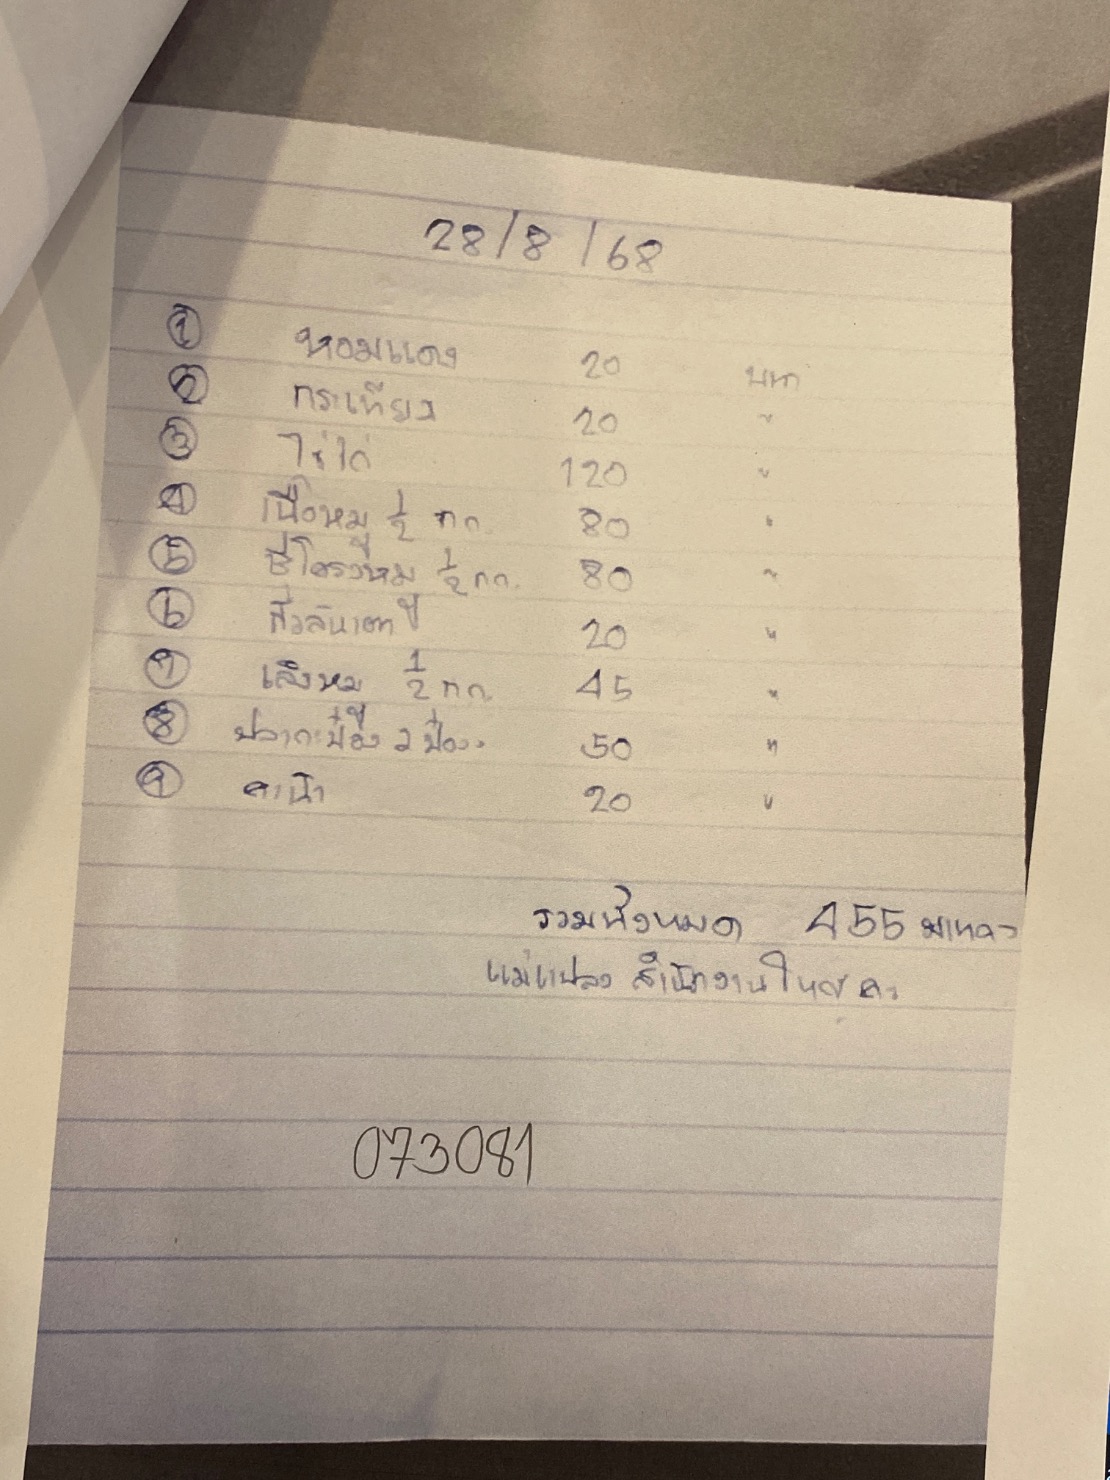 28/8/68
① หอมแดง 20 บาท
② กระเทียม 20 "
③ ไข่ไก่ 120 "
④ เนื้อหมู 1/2 กก. 80 "
⑤ ซี่โครงหมู 1/2 กก. 80 "
⑥ 20 "
⑦ เล้งหมู 1/2 กก. 45 "
⑧ ปลากะป๋อง 2 ป๋อง 50 "
⑨ คะน้า 20 "
รวมทั้งหมด 455 บาทคะ
แม่แปลง สำนักงานใหญ่ คะ
073081